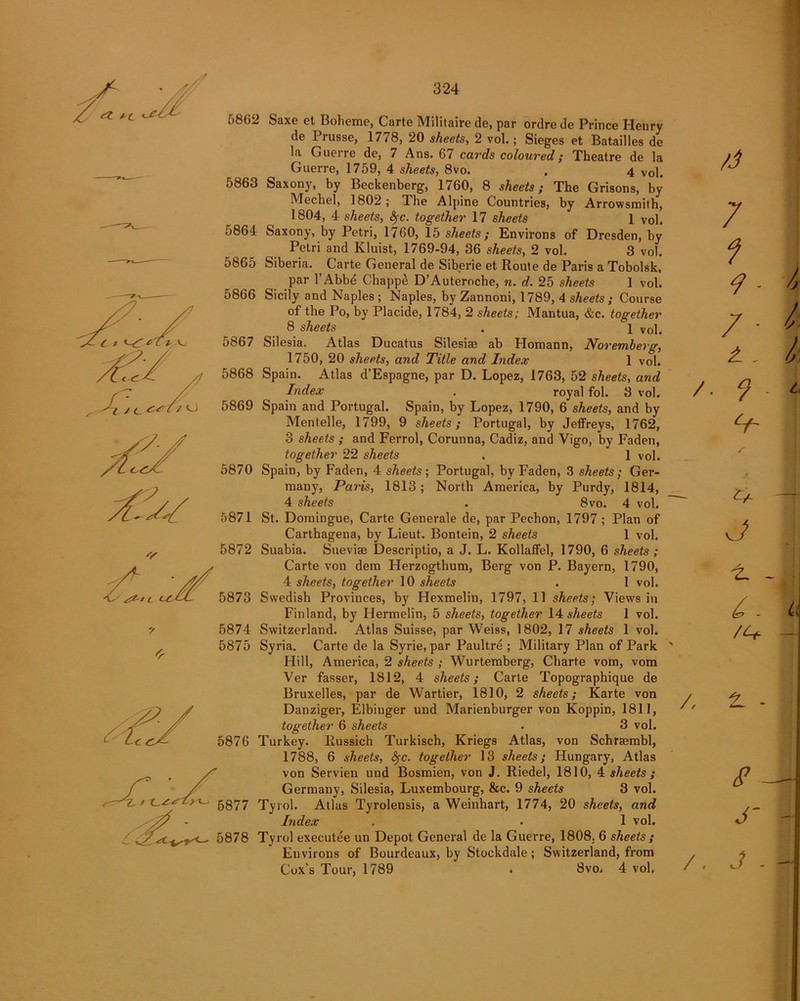 324
5862 Saxe et Boheme, Carte Militaire de, par ordre de Prince Henry
de Prusse, 1778, 20 sheets, 2 vol.; Sieges et Batailles de
la Guerre de, 7 Ans. 67 cards coloured; Theatre de la
Guerre, 1759, 4 sheets, 8vo. . 4 vol.
5863 Saxony, by Beckenberg, 1760, 8 sheets; The Grisons, by
Mechel, 1802; The Alpine Countries, by Arrowsmith,
1804, 4 sheets, &c. together 17 sheets 1 vol.
5864 Saxony, by Petri, 1760, 15 sheets; Environs of Dresden, by
Petri and Kluist, 1769-94, 36 sheets, 2 vol. 3 vol.
5865 Siberia. Carte General de Siberie et Route de Paris a Tobolsk,
par l'Abbé Chappè D'Auteroche, n. d. 25 sheets 1 vol.
5866 Sicily and Naples; Naples, by Zannoni, 1789, 4 sheets; Course
of the Po, by Placide, 1784, 2 sheets; Mantua, &c. together
8 sheets . 1 vol.
5867 Silesia. Atlas Ducatus Silesiæ ab Homann, Noremberg,
1750, 20 sheets, and Title and Index 1 vol.
5868 Spain. Atlas d'Espagne, par D. Lopez, 1763, 52 sheets, and
Index . royal fol. 3 vol.
5869 Spain and Portugal. Spain, by Lopez, 1790, 6 sheets, and by
Mentelle, 1799, 9 sheets; Portugal, by Jeffreys, 1762,
3 sheets; and Ferrol, Corunna, Cadiz, and Vigo, by Faden,
together 22 sheets . 1 vol.
5870 Spain, by Faden, 4 sheets; Portugal, by Faden, 3 sheets; Ger-
many, Paris, 1813; North America, by Purdy, 1814,
4 sheets . 8vo. 4 vol.
5871 St. Domingue, Carte Generale de, par Pechon, 1797; Plan of
Carthagena, by Lieut. Bontein, 2 sheets 1 vol.
5872 Suabia. Sueviæ Descriptio, a J. L. Kollaffel, 1790, 6 sheets;
Carte von dem Herzogthum, Berg von P. Bayern, 1790,
4 sheets, together 10 sheets . 1 vol.
5873 Swedish Provinces, by Hexmelin, 1797, 11 sheets; Views in
Finland, by Hermelin, 5 sheets, together 14 sheets 1 vol.
5874 Switzerland. Atlas Suisse, par Weiss, 1802, 17 sheets 1 vol.
5875 Syria. Carte de la Syrie, par Paultré; Military Plan of Park
Hill, America, 2 sheets; Wurtemberg, Charte vom, vom
Ver fasser, 1812, 4 sheets; Carte Topographique de
Bruxelles, par de Wartier, 1810, 2 sheets; Karte von
Danziger, Elbinger und Marienburger von Koppin, 1811,
together 6 sheets . 3 vol.
5876 Turkey. Russich Turkisch, Kriegs Atlas, von Schræmbl,
1788, 6 sheets, &c. together 13 sheets; Hungary, Atlas
von Servien und Bosmien, von J. Riedel, 1810, 4 sheets;
Germany, Silesia, Luxembourg, &c. 9 sheets 3 vol.
5877 Tyrol. Atlas Tyrolensis, a Weinhart, 1774, 20 sheets, and
Index . . 1 vol.
5878 Tyrol executée un Depot General de la Guerre, 1808, 6 sheets;
Environs of Bourdeaux, by Stockdale; Switzerland, from
Cox's Tour, 1789 . 8vo. 4 vol.